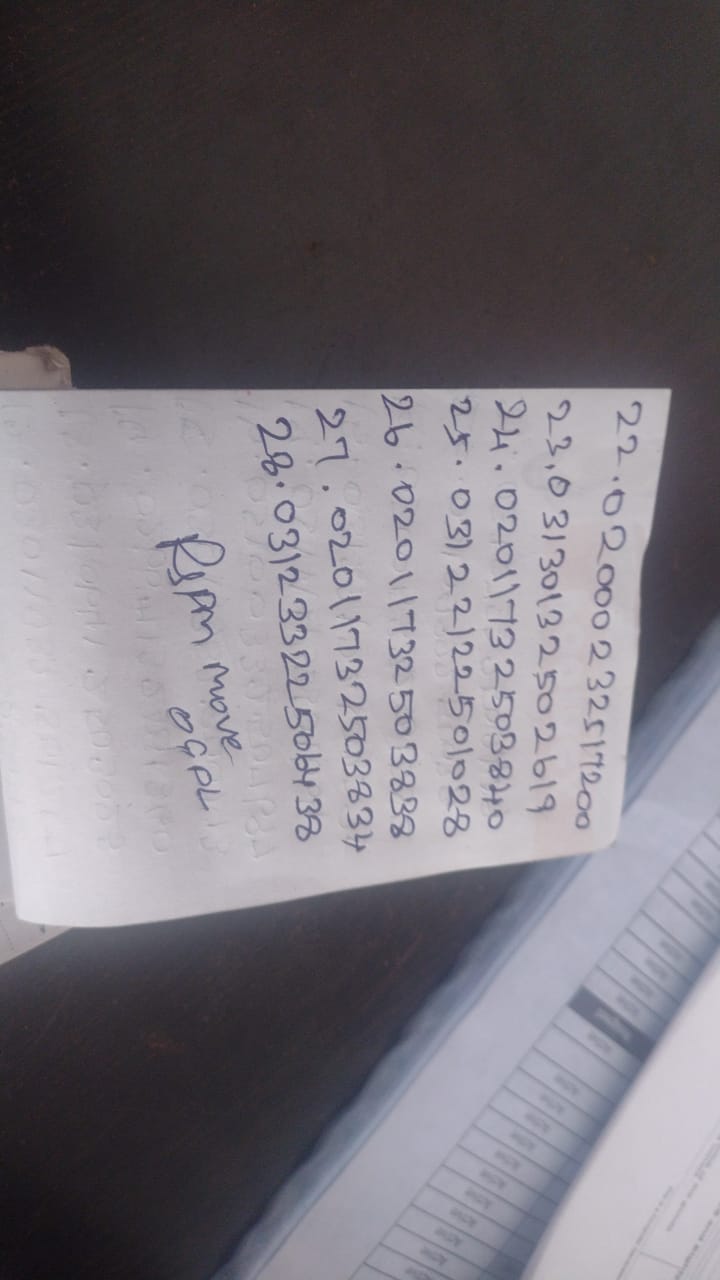 22.02000232517200
23.03130132502619
24.02011732503840
25.03122122501028
26.02011732503838
27.02011732503834
28.03123322506438
move